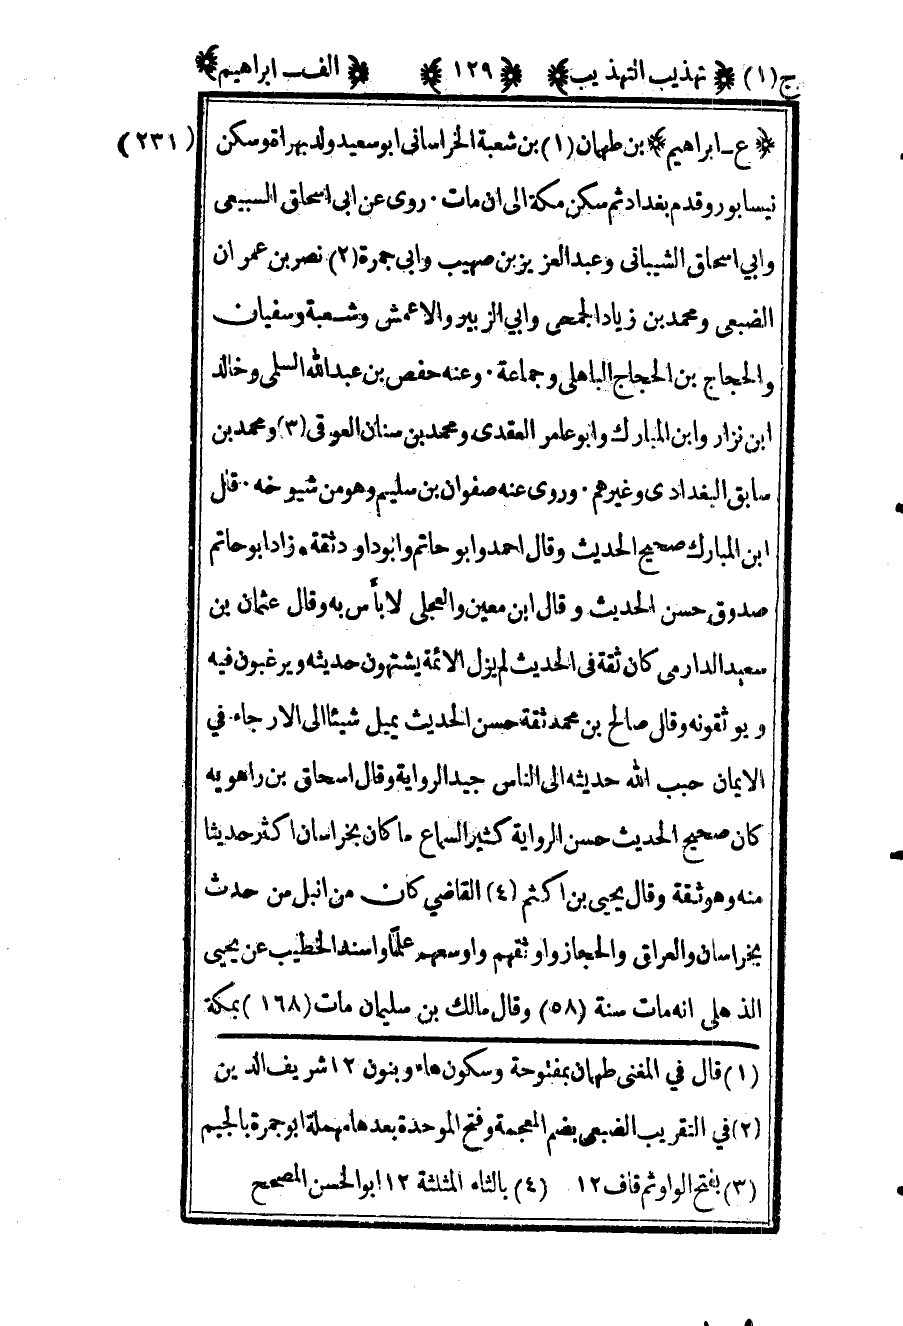 ج(١) ﴿ تهذيب التهذيب ﴾ ﴿ ١٢٩ ﴾ ﴿ الف ـ ابراهيم ﴾
﴿ ع ـ ابراهيم ﴾ بن طهمان (١) بن شعبة الخراسانى ابو سعيد ولد بهراة وسكن (٢٣١)
نيسابور وقدم بغداد ثم سكن مكة الى ان مات . روى عن ابى اسحاق السبيعى
وابي اسحاق الشيبانى وعبد العزيز بن صهيب وابى جمرة (٢) نصر بن عمران
الضبعى ومحمد بن زياد الجمحى وابي الزبير والاعمش وشعبة وسفيان
والحجاج بن الحجاج الباهلى وجماعة . وعنه حفص بن عبد الله السلمى وخالد
ابن نزار وابن المبارك وابو عامر العقدى ومحمد بن سنان العوقى (٣) ومحمد بن
سابق البغدادى وغيرهم . وروى عنه صفوان بن سليم وهو من شيوخه . قال
ابن المبارك صحيح الحديث وقال احمد وابو حاتم وابو داود ثقة . زاد ابو حاتم
صدوق حسن الحديث وقال ابن معين والعجلى لا بأس به وقال عثمان بن
سعيد الدارمى كان ثقة فى الحديث لم يزل الائمة يشتهون حديثه ويرغبون فيه
ويوثقونه وقال صالح بن محمد ثقة حسن الحديث يميل شيئا الى الارجاء فى
الايمان حبب الله حديثه الى الناس جيد الرواية وقال اسحاق بن راهويه
كان صحيح الحديث حسن الرواية كثير السماع ما كان بخراسان اكثر حديثا
منه وهو ثقة وقال يحيى بن اكثم (٤) القاضي كان من انبل من حدث
بخراسان والعراق والحجاز واوثقهم واوسعهم علمًا واسند الخطيب عن يحيى
الذهلى انه مات سنة (٥٨) وقال مالك بن سليمان مات (١٦٨) بمكة
(١) قال في المغنى طهمان بمفتوحة وسكون هاء وبنون ١٢ شريف الدين
(٢) في التقريب الضبعى بضم المعجمة وفتح الموحدة بعدها مهملة ابو جمرة بالجيم
(٣) بفتح الواو ثم قاف ١٢ (٤) بالثاء المثلثة ١٢ ابو الحسن المصحح